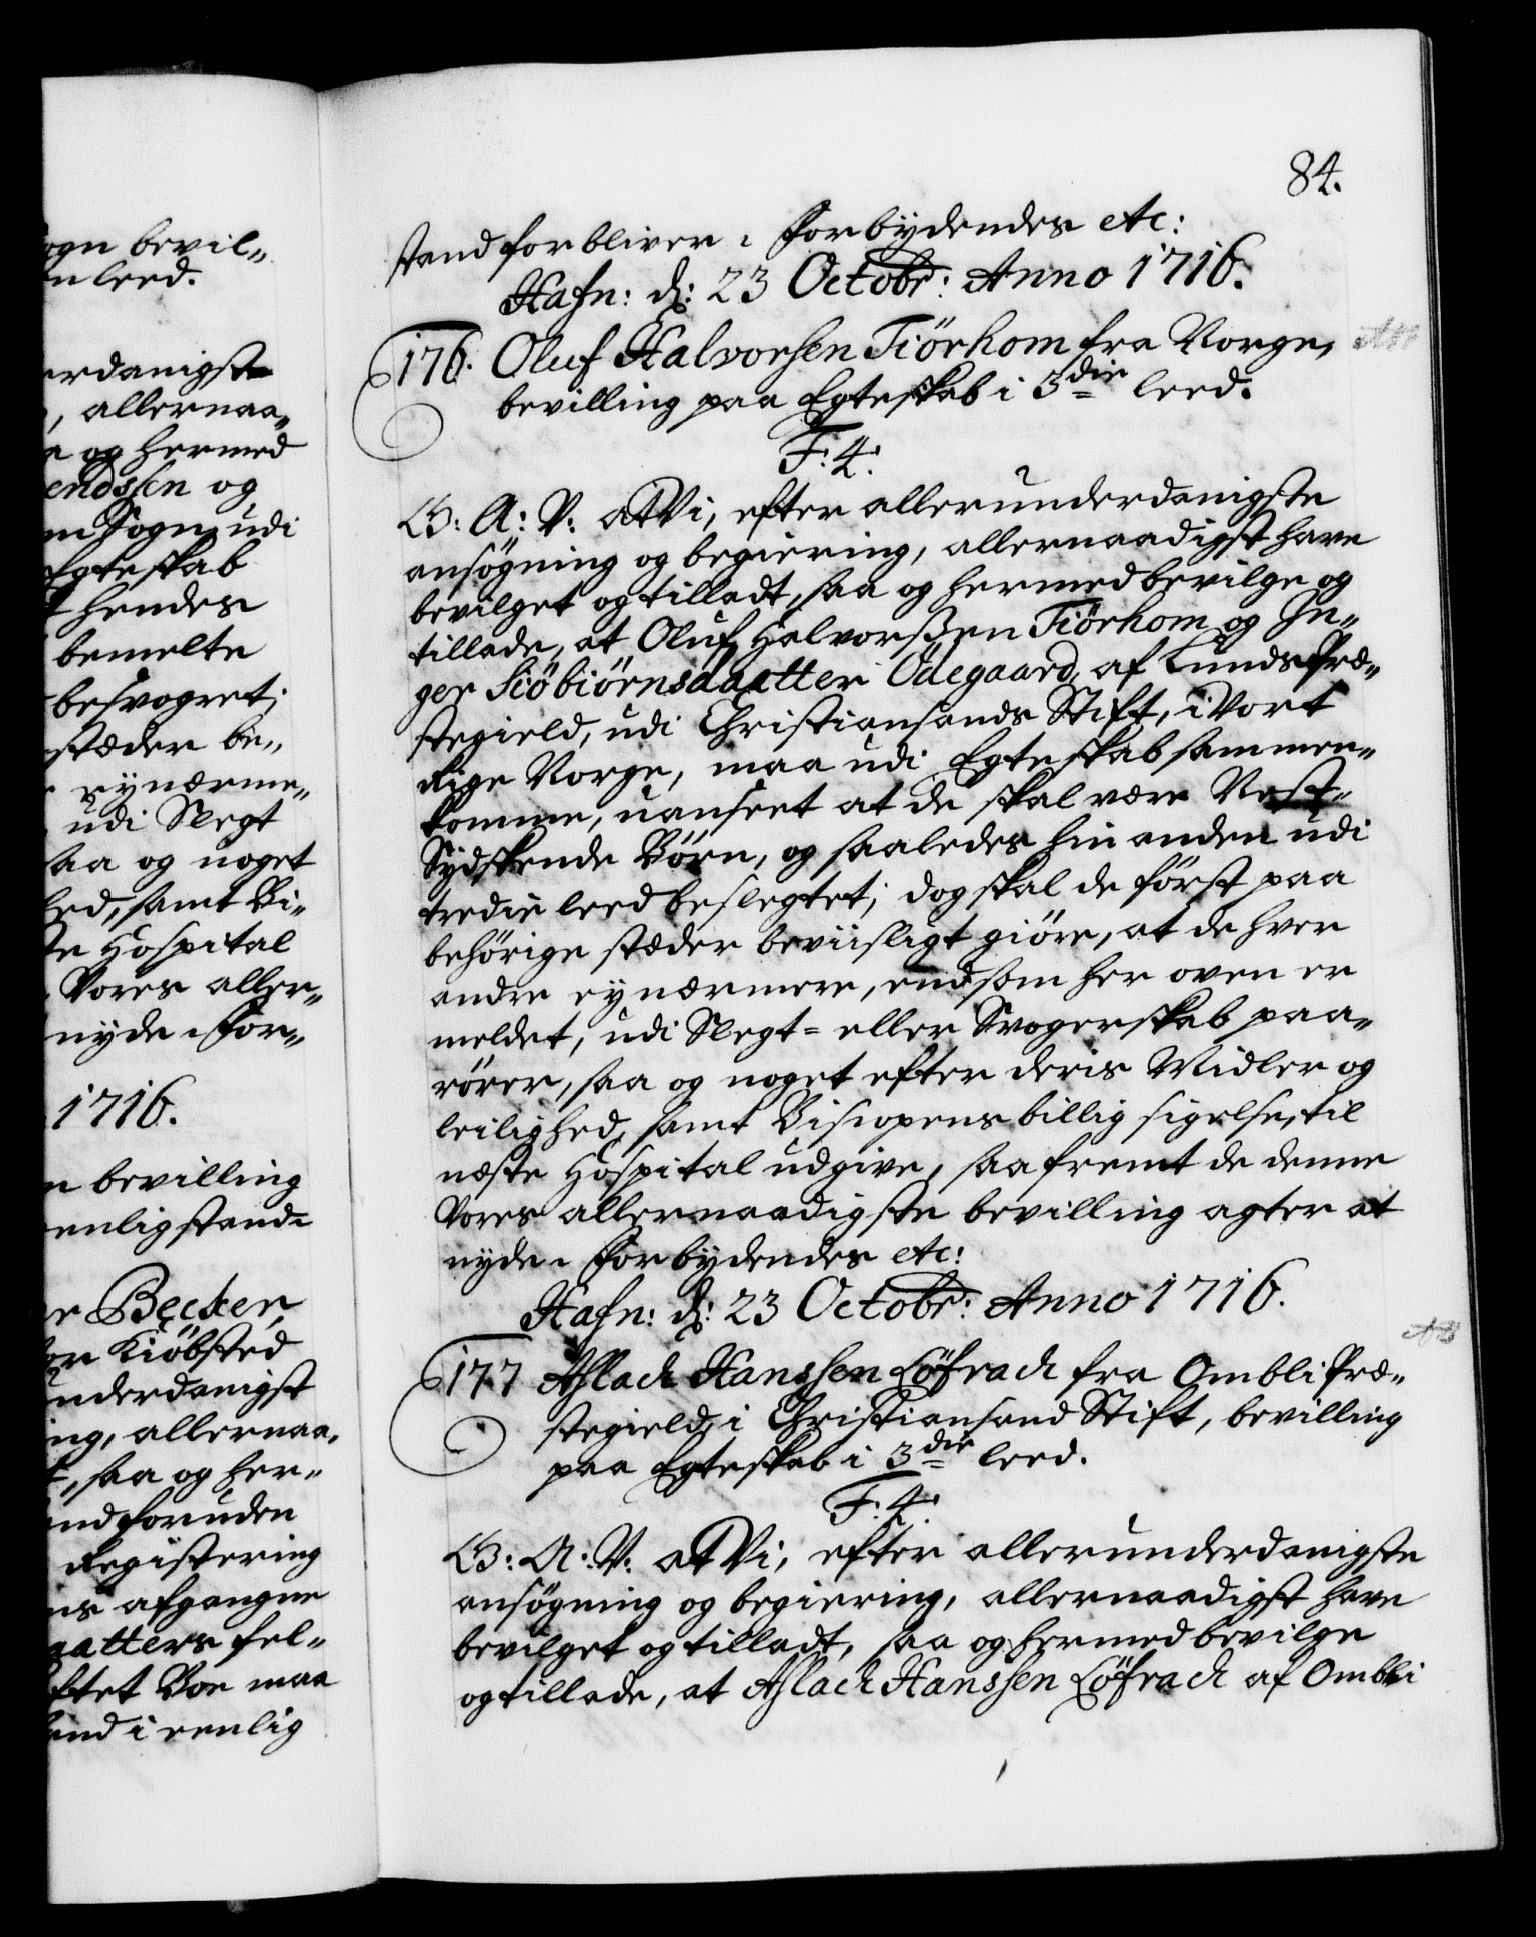 ogn bevil„
n leed.
erdanigste
, allernaa„
a og hermed
endssen og
m Sogn, udi
Egteskab
t hendes
bemelte
besvogret;
stæder be„
eynærme„
udi Slegt
saa og noget
hed, samt Bi„
te Hospital
Vores aller„
nyde. For„
1716.
n bevilling
eenlig stand
r Becker,
or Kiöbsted
underdanigst
ng, allernaa„
t, saa og her„
and foruden
Registering
ns afgangne
aatters fel„
ftet Boe maa
end i eenlig
84.
stand forbliver. Forbydendes etc:
Hafn: d: 23 Octobr: Anno 1716.
176. Oluf Halvorsen Tiörhom fra Norge,
bevilling paa Egteskab i 3die leed.
F: 4.
G: A: V: at Vi, efter allerunderdanigste
ansøgning og begiering, allernaadigst have
bevilget og tilladt, saa og hermed bevilge og
tillade, at Oluf Halvorsßen Tiörhom og In„
ger Siöbiörnsdaatter Ödegaard, af Lunds Præ„
stegield, udi Christiansands Stift, i Vort
Rige Norge, maa udi Egteskab sammen„
komme, uanseet at de skal være Nest„
Sydskende Börn, og saaledes hin anden udi
tredie leed beslegtet; dog skal de först paa
behörige stæder beviisligt giöre, at de hver
andre ey nærmere, end som her oven er
meldet, udi Slegt= eller Svogerskab paa„
rörer, saa og noget efter deris Midler og
leilighed, samt Biscopens billig sigelse, til
næste Hospital udgive, saafremt de denne
Vores allernaadigste bevilling agter at
nyde. Forbydendes etc:
Hafn: d: 23 Octobr: Anno 1716.
177 Aslach Hanssen Löfrach fra Ombli Præ„
stegield, i Christiansand Stift, bevilling
paa Egteskab i 3die leed.
F: 4.
G: A: V: at Vi, efter allerunderdanigste
ansögning og begiering, allernaadigst have
bevilget og tilladt, saa og hermed bevilge
og tillade, at Aslach Hanssen Löfrach af Ombli